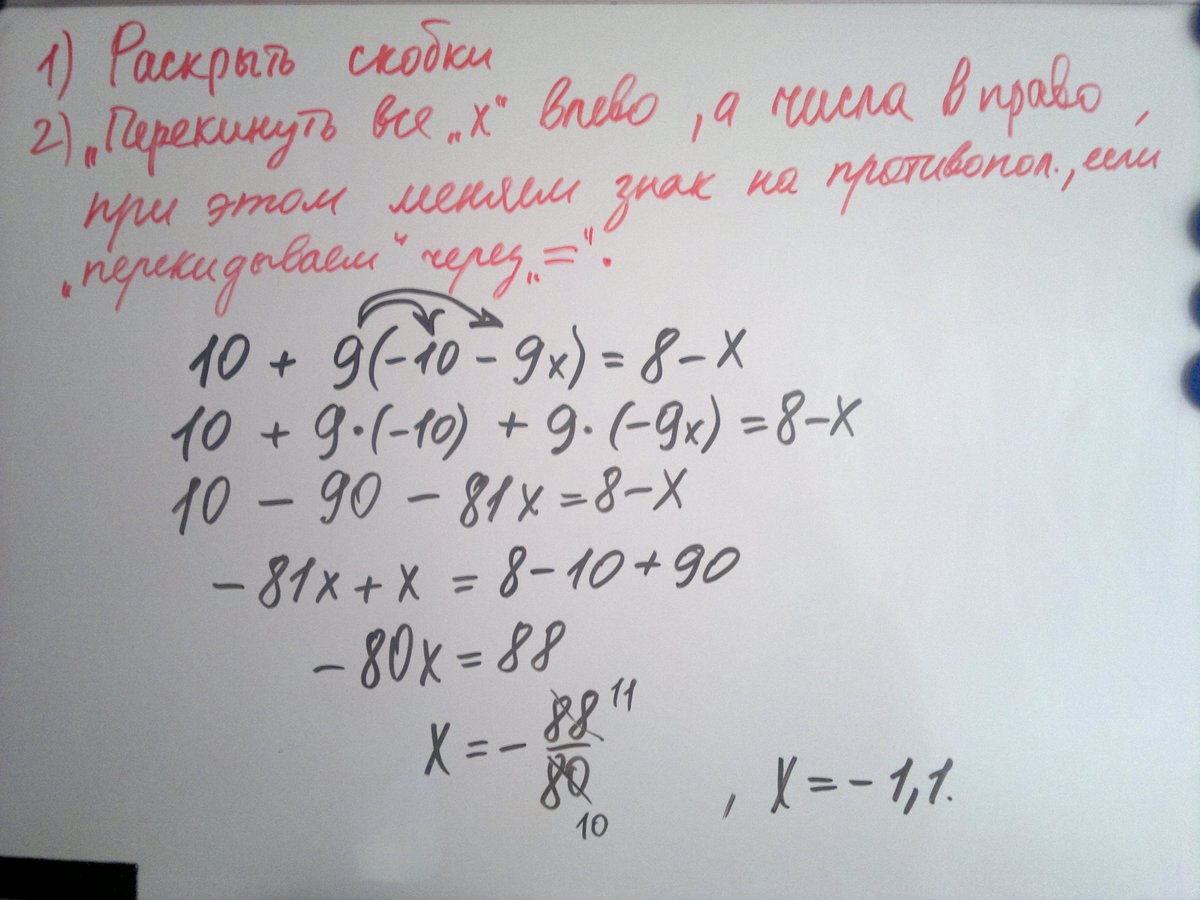 1) Раскрыть скобки
2) „Перекинуть все „х“ влево, а числа вправо,
при этом меняем знак на противопол., если
„перекидываем“ через „=“.
10 + 9(-10 - 9x) = 8 - x
10 + 9·(-10) + 9·(-9x) = 8 - x
10 - 90 - 81x = 8 - x
-81x + x = 8 - 10 + 90
-80x = 88
x = - 88/80 11/10 , x = -1,1.